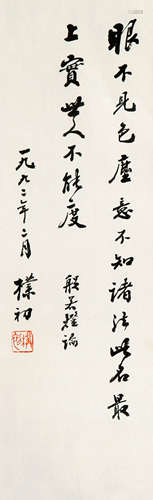 眼不见色尘意不知诸法此名最
上實世人不能度
般若燈論
一九九二年二月
樸初